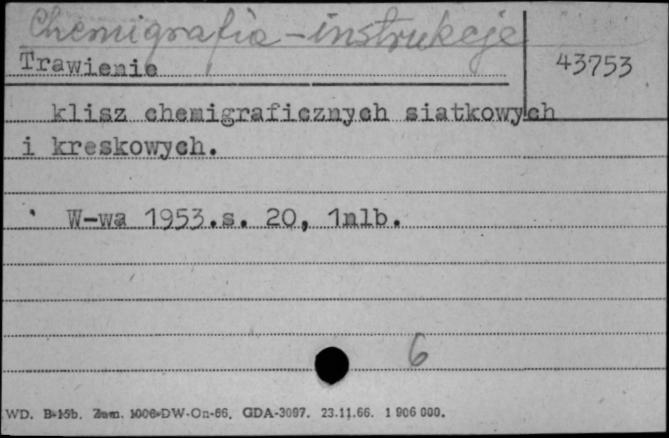 Chemigrafia - instrukcje
Trawienie
43753
klisz chemigraficznych siatkowych
i kreskowych.
W-wa 1953.s. 20, 1nlb.
6
WD. B-15b. Zam. 1006-DW-On-66. GDA-3097. 23.11.66. 1 906 000.